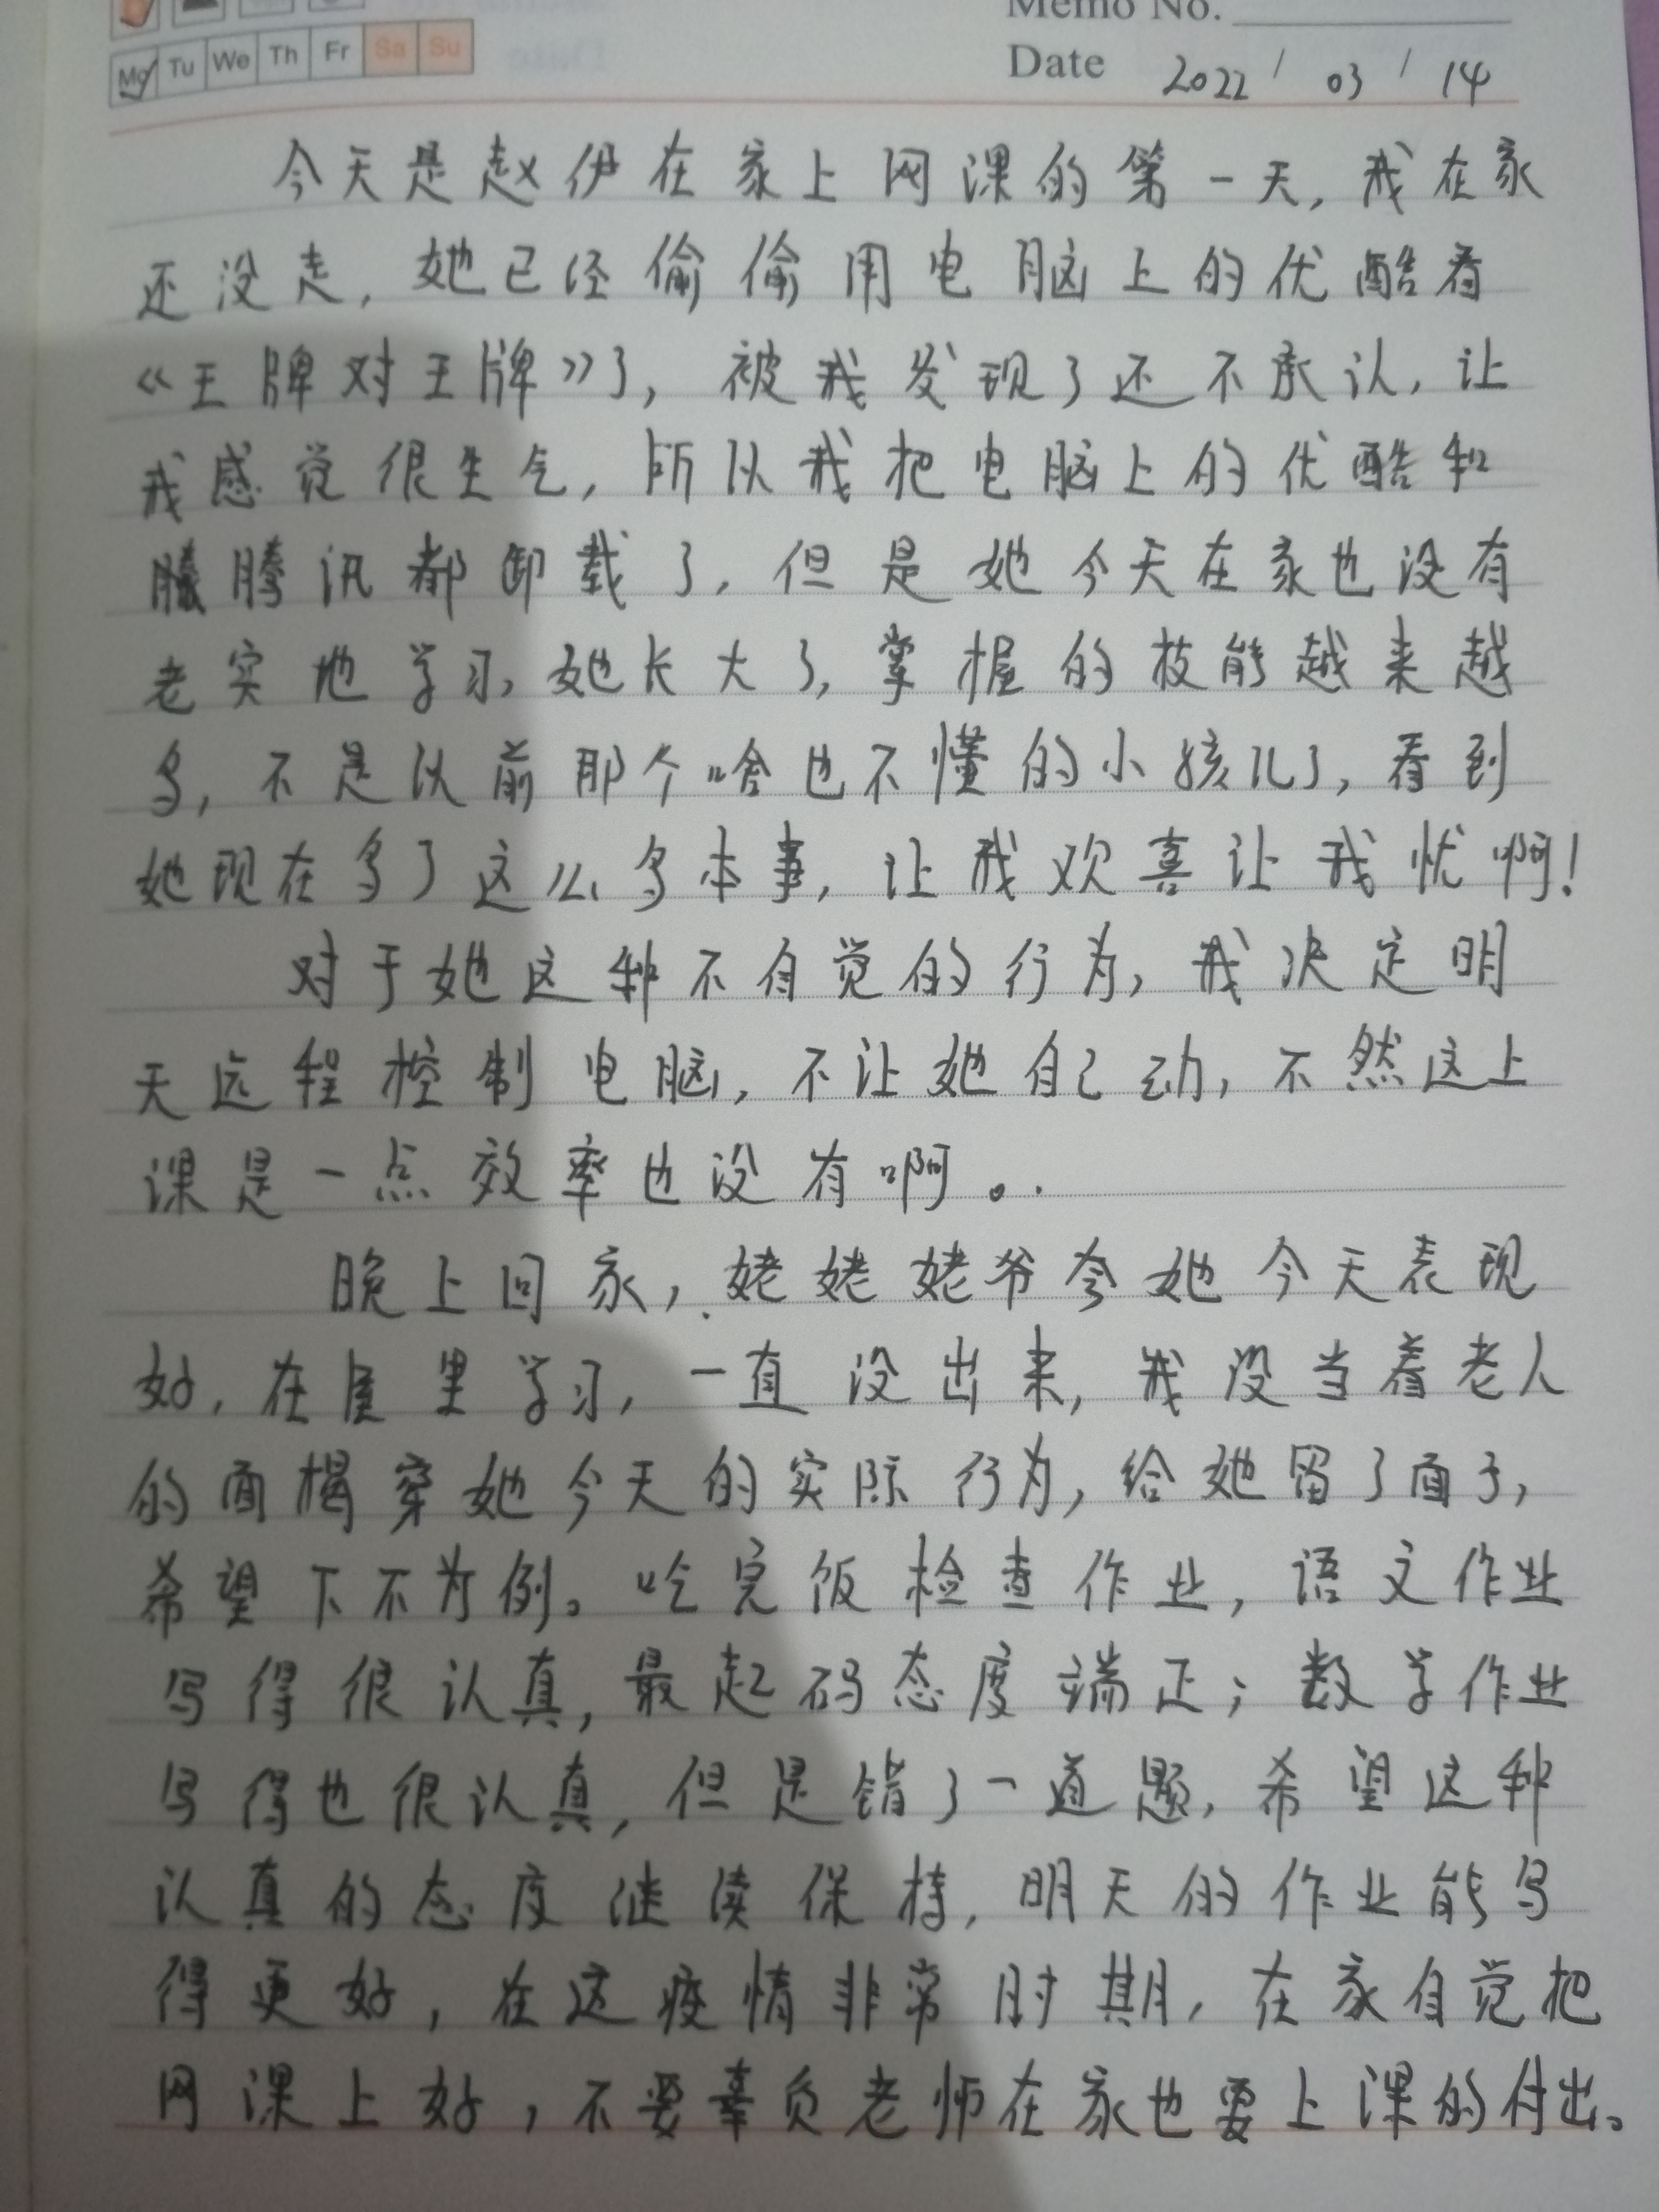 Memo No.
Mo Tu We Th Fr Sa Su
Date 2022 / 03 / 14
今天是赵伊在家上网课的第一天，我在家
还没走，她已经偷偷用电脑上的优酷看
《王牌对王牌》了，被我发现了还不承认，让
我感觉很生气，所以我把电脑上的优酷和
腾讯都卸载了，但是她今天在家也没有
老实地学习，她长大了，掌握的技能越来越
多，不是以前那个啥也不懂的小孩儿了，看到
她现在多了这么多本事，让我欢喜让我忧啊！
对于她这种不自觉的行为，我决定明
天远程控制电脑，不让她自己动，不然这上
课是一点效率也没有啊。
晚上回家，姥姥姥爷夸她今天表现
好，在屋里学习，一直没出来，我没当着老人
的面揭穿她今天的实际行为，给她留了面子，
希望下不为例。吃完饭检查作业，语文作业
写得很认真，最起码态度端正；数学作业
写得也很认真，但是错了一道题，希望这种
认真的态度继续保持，明天的作业能写
得更好，在这疫情非常时期，在家自觉把
网课上好，不要辜负老师在家也要上课的付出。